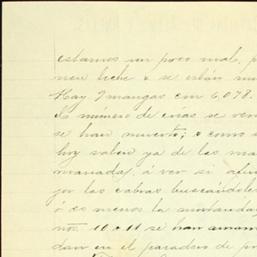 estamos un poco mal, p
nen leche & se están mu
Hay 9 mangas con 6,078.
El número de crías se ve
se han muerto; & como
hoy salen ya de las ma
manada, a ver si
por las cabras buscándole
ó es menos la mortanda
nos. 10 & 11 se han
dan en el paradero de